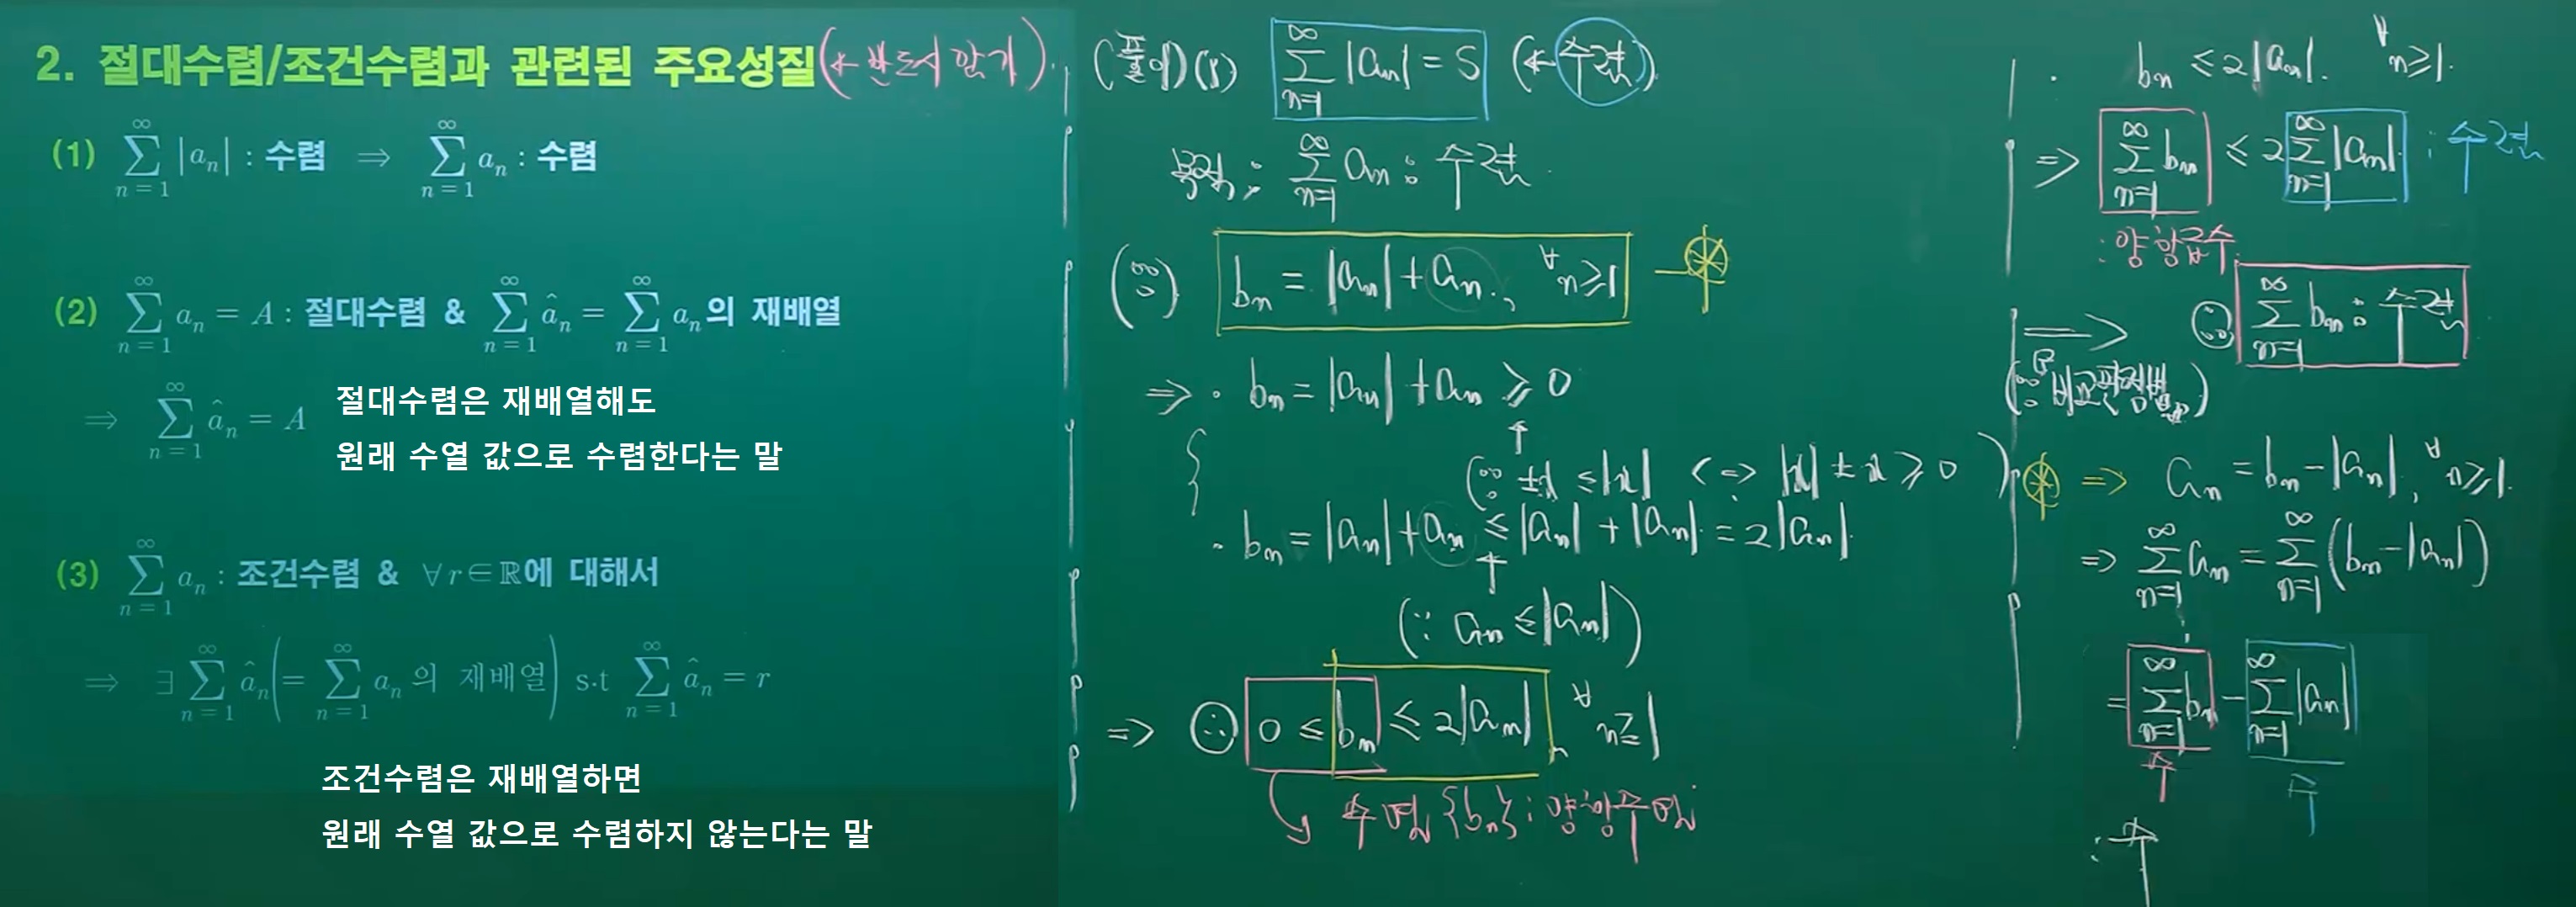 2. 절대수렴/조건수렴과 관련된 주요성질(← 반드시 암기).
(1) ∑_{n=1}^{∞} |a_n| : 수렴 ⇒ ∑_{n=1}^{∞} a_n : 수렴
(2) ∑_{n=1}^{∞} a_n = A : 절대수렴 & ∑_{n=1}^{∞} â_n = ∑_{n=1}^{∞} a_n의 재배열
⇒ ∑_{n=1}^{∞} â_n = A
절대수렴은 재배열해도
원래 수열 값으로 수렴한다는 말
(3) ∑_{n=1}^{∞} a_n : 조건수렴 & ∀r∈ℝ에 대해서
⇒ ∃ ∑_{n=1}^{∞} â_n (= ∑_{n=1}^{∞} a_n 의 재배열) s.t ∑_{n=1}^{∞} â_n = r
조건수렴은 재배열하면
원래 수열 값으로 수렴하지 않는다는 말
(풀이) (1) ∑_{n=1}^{∞} |a_n| = S (← 수렴)
목적 : ∑_{n=1}^{∞} a_n : 수렴.
(∵) b_n = |a_n| + a_n, ∀n≥1 ─ ⊛
⇒ · b_n = |a_n| + a_n ≥ 0
(∵ ±x ≤ |x| ⟺ |x| ± x ≥ 0)
· b_n = |a_n| + a_n ≤ |a_n| + |a_n| = 2|a_n|.
(∵ a_n ≤ |a_n|)
⇒ ∴ 0 ≤ b_n ≤ 2|a_n|, ∀n≥1
수열 {b_n} : 양항수열
· b_n ≤ 2|a_n|. ∀n≥1.
⇒ ∑_{n=1}^{∞} b_n ≤ 2∑_{n=1}^{∞} |a_n| : 수렴
: 양항급수
⇒ ∴ ∑_{n=1}^{∞} b_n : 수렴
(∵ 비교판정법)
⊛ ⇒ a_n = b_n − |a_n|, ∀n≥1.
⇒ ∑_{n=1}^{∞} a_n = ∑_{n=1}^{∞} (b_n − |a_n|)
= ∑_{n=1}^{∞} b_n − ∑_{n=1}^{∞} |a_n|
수 수
: 수